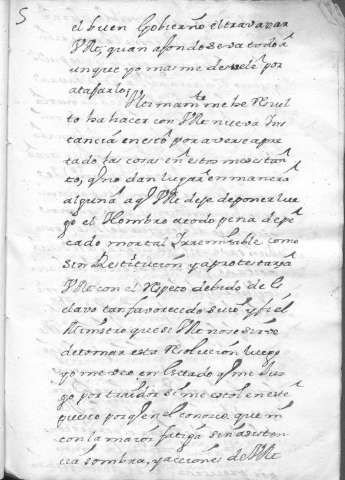 5
el buen Gobierno el travaxar
VM, quan afondo se va todo a
unque yo mas me desvele por
atajarlo;
Ultimam.te me he resuel
to ha hacer con VM nueva Ins
tancia en esto por averse apre
tado las cosas en estos
to, q no dan lugar en manera
alguna a q VM deje de poner lue
go el Hombro a todo pena de pe
cado mortal Irremisible como
sin Restitución y a protestar a
VM con el Respeto debido de Es
clavo tan favorecido suio, y fiel
Ministro que si VM no se sirve
de tomar esta Resolución luego
yo me veo en estado q me Juz
go por traidor si me estoi en este
puesto porq en el conozco que ni
con la maior fatiga sin asisten
cia sombra, y acciones de VM